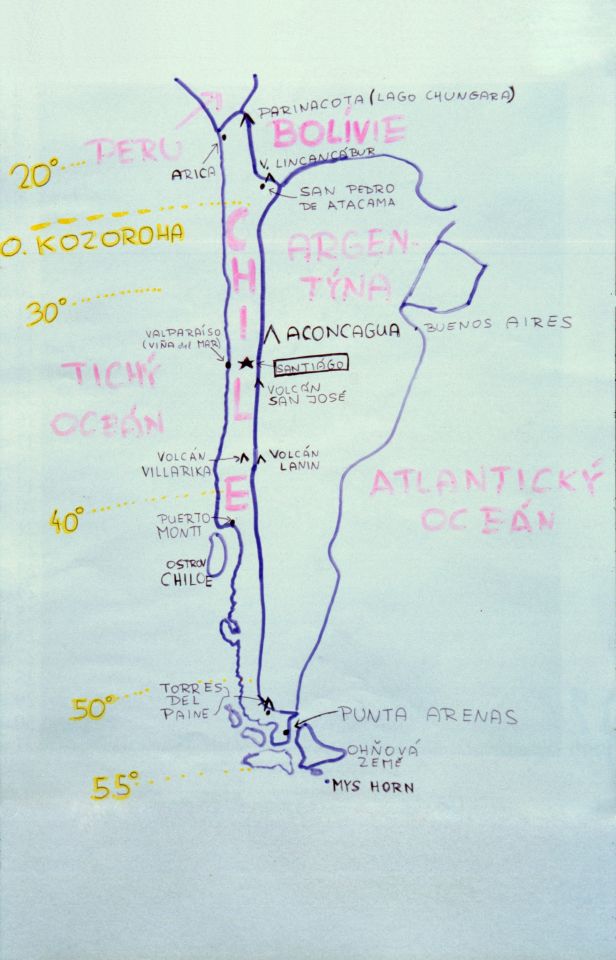 PARINACOTA (LAGO CHUNGARA)
BOLÍVIE
PERU
V. LINCANCÁBUR
20°
ARICA
SAN PEDRO
DE ATACAMA
O. KOZOROHA
CHILE
ARGEN-
TÝNA
30°
ACONCAGUA
BUENOS AIRES
VALPARAÍSO
(VIÑA del MAR)
SANTIÁGO
TICHÝ
OCEÁN
VOLCÁN
SAN JOSÉ
VOLCÁN
VILLARIKA
VOLCÁN
LANIN
ATLANTICKÝ
OCEÁN
40°
PUERTO
MONTT
OSTROV
CHILOE
50°
TORRES
DEL
PAINE
PUNTA ARENAS
OHŇOVÁ
ZEMĚ
55°
MYS HORN